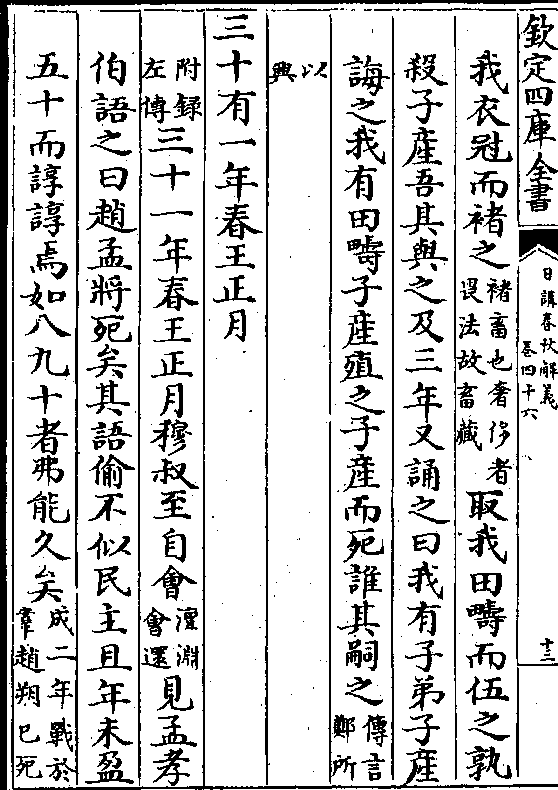 欽定四庫全書
日講春秋解義
卷四十六
十三
我衣冠而褚之褚畜也奢侈者畏法故畜藏取我田疇而伍之孰
殺子產吾其與之及三年又誦之曰我有子弟子產
誨之我有田疇子產殖之子產而死誰其嗣之傳言鄭所
以興
三十有一年春王正月
附錄左傳三十一年春王正月穆叔至自會澶淵會還見孟孝
伯語之曰趙孟將死矣其語偷不似民主且年未盈
五十而諄諄焉如八九十者弗能久矣成二年戰於鞌趙朔已死